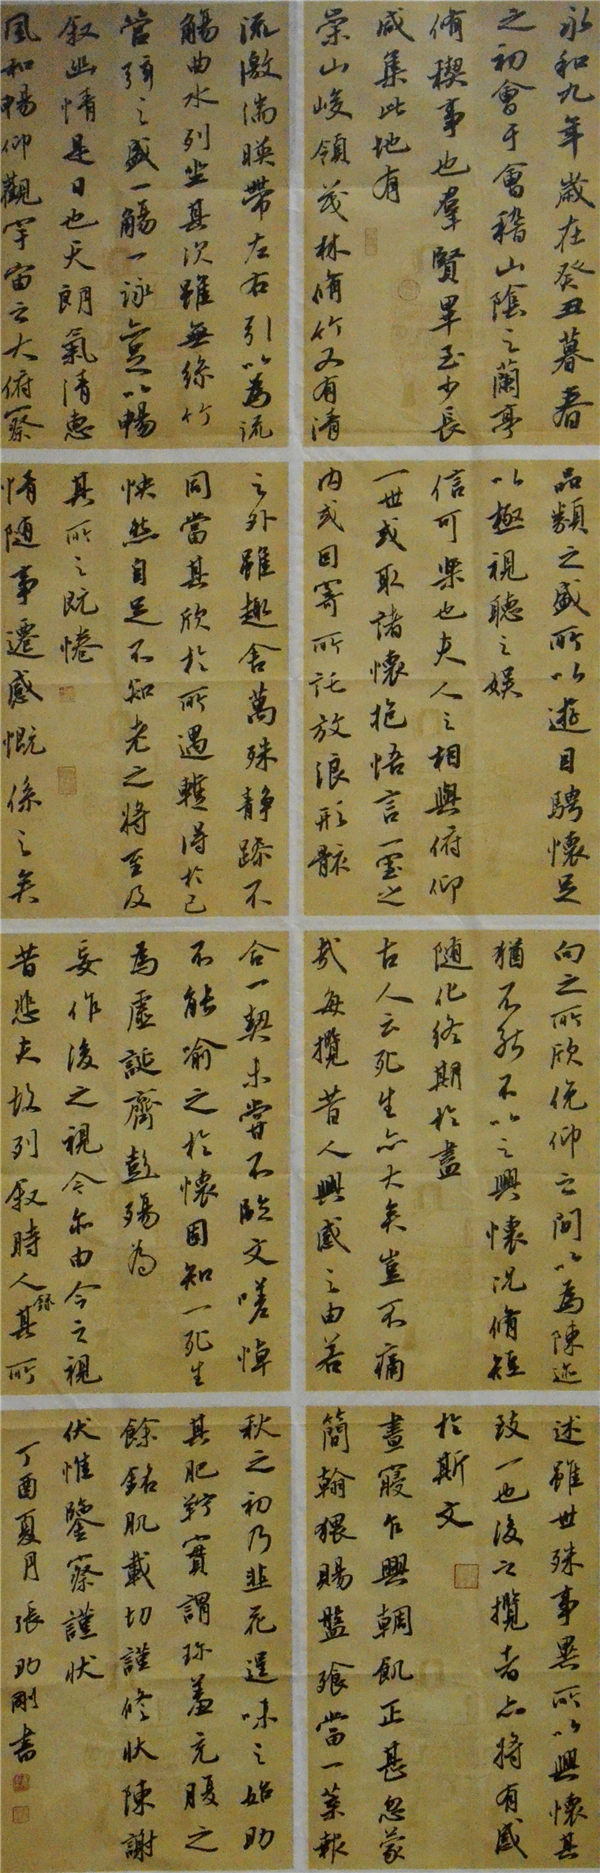 永和九年歲在癸丑暮春
之初會于會稽山陰之蘭亭
脩稧事也羣賢畢至少長
咸集此地有
崇山峻領茂林脩竹又有清
流激湍暎帶左右引以為流
觴曲水列坐其次雖無絲竹
管弦之盛一觴一詠亦足以暢
敘幽情是日也天朗氣清惠
風和暢仰觀宇宙之大俯察
品類之盛所以遊目騁懷足
以極視聽之娛
信可樂也夫人之相與俯仰
一世或取諸懷抱悟言一室之
內或因寄所託放浪形骸
之外雖趣舍萬殊靜躁不
同當其欣於所遇蹔得於己
怏然自足不知老之將至及
其所之既惓
情隨事遷感慨係之矣
向之所欣俛仰之間以為陳迹
猶不能不以之興懷況脩短
隨化終期於盡
古人云死生亦大矣豈不痛
哉每攬昔人興感之由若
合一契未嘗不臨文嗟悼
不能喻之於懷固知一死生
為虛誕齊彭殤為
妄作後之視今亦由今之視
昔悲夫故列敘時人錄其所
述雖世殊事異所以興懷其
致一也後之攬者亦將有感
於斯文
晝寢乍興輖飢正甚忽蒙
簡翰猥賜盤飧當一葉報
秋之初乃韭花逞味之始助
其肥羜實謂珍羞充腹之
餘銘肌載切謹修狀陳謝
伏惟鑒察謹狀
丁酉夏月張助剛書